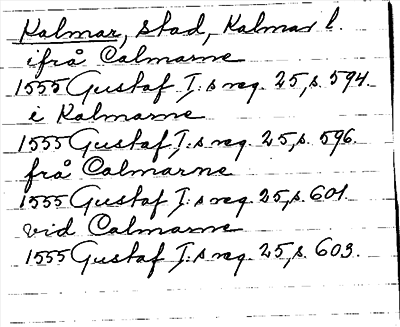 Kalmar, stad, Kalmar l.
ifrå Calmarne
1555 Gustaf I:s reg. 25, s. 594.
i Kalmarne
1555 Gustaf I:s reg. 25, s. 596.
från Calmarne
1555 Gustaf I:s reg. 25, s. 601.
vid Calmarne
1555 Gustaf I:s reg. 25, s. 603.